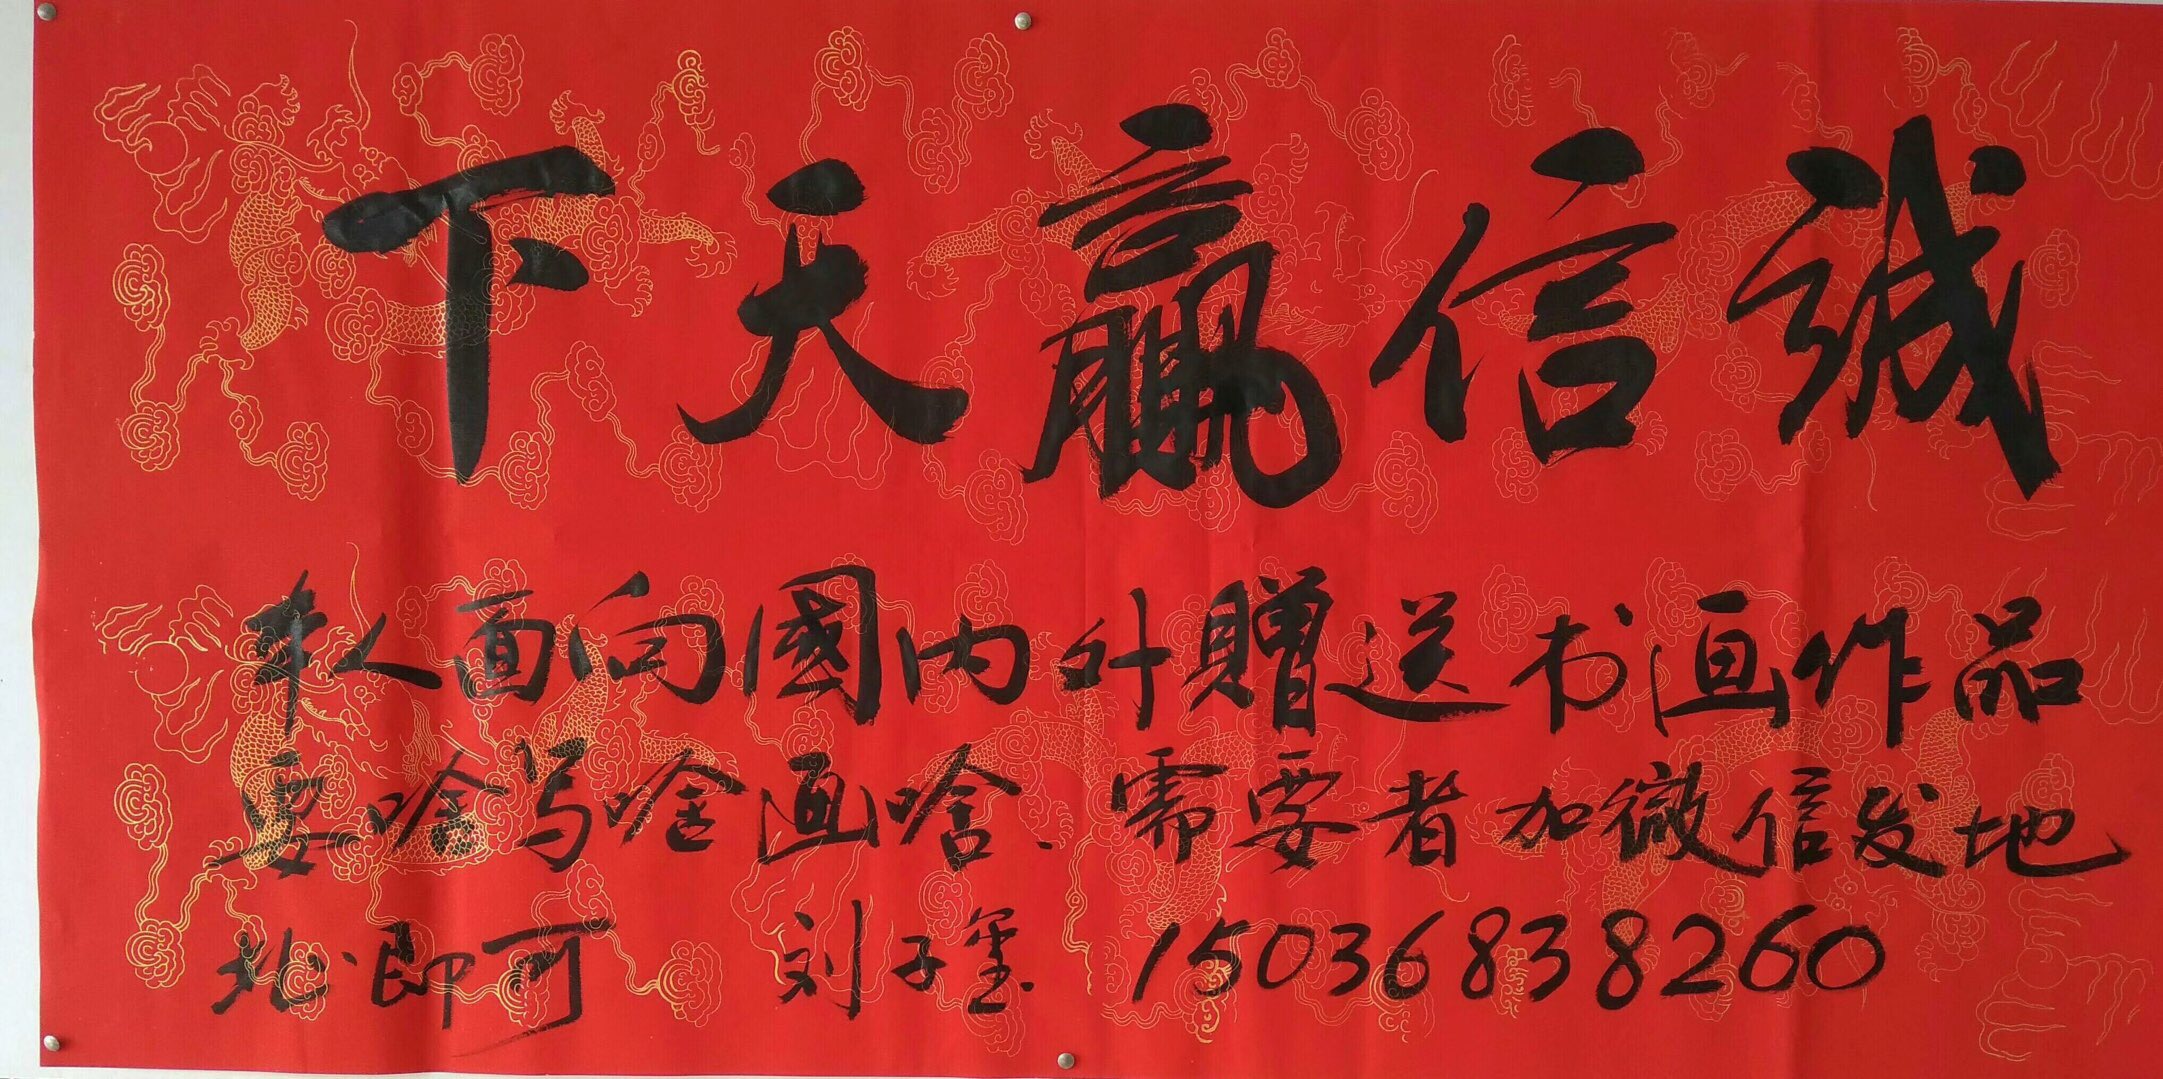 誠信赢天下
本人面向國内外贈送书画作品
要啥写啥画啥、需要者加微信发地
址即可 刘子玺 15036838260